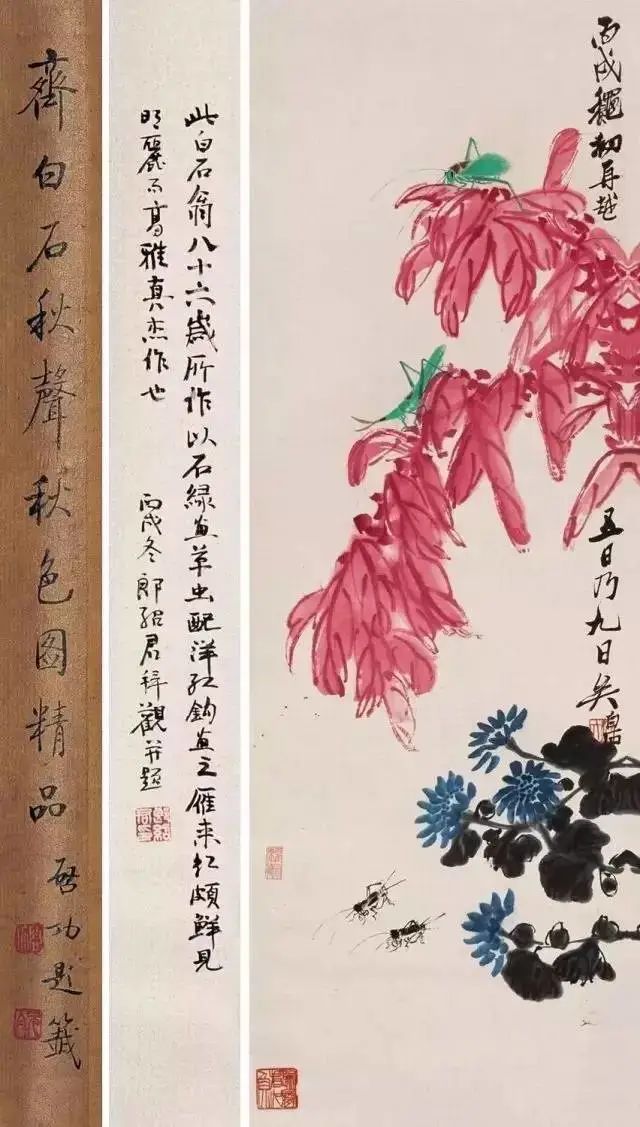 齊白石秋聲秋色圖精品
啓功題籤
此白石翁八十六歲所作以石緑畫草虫配洋红鈎畫之雁来红頗鮮見
明麗而高雅真杰作也
丙戌冬郎紹君拜觀并題
丙戌穐初再越
五日乃九日矣